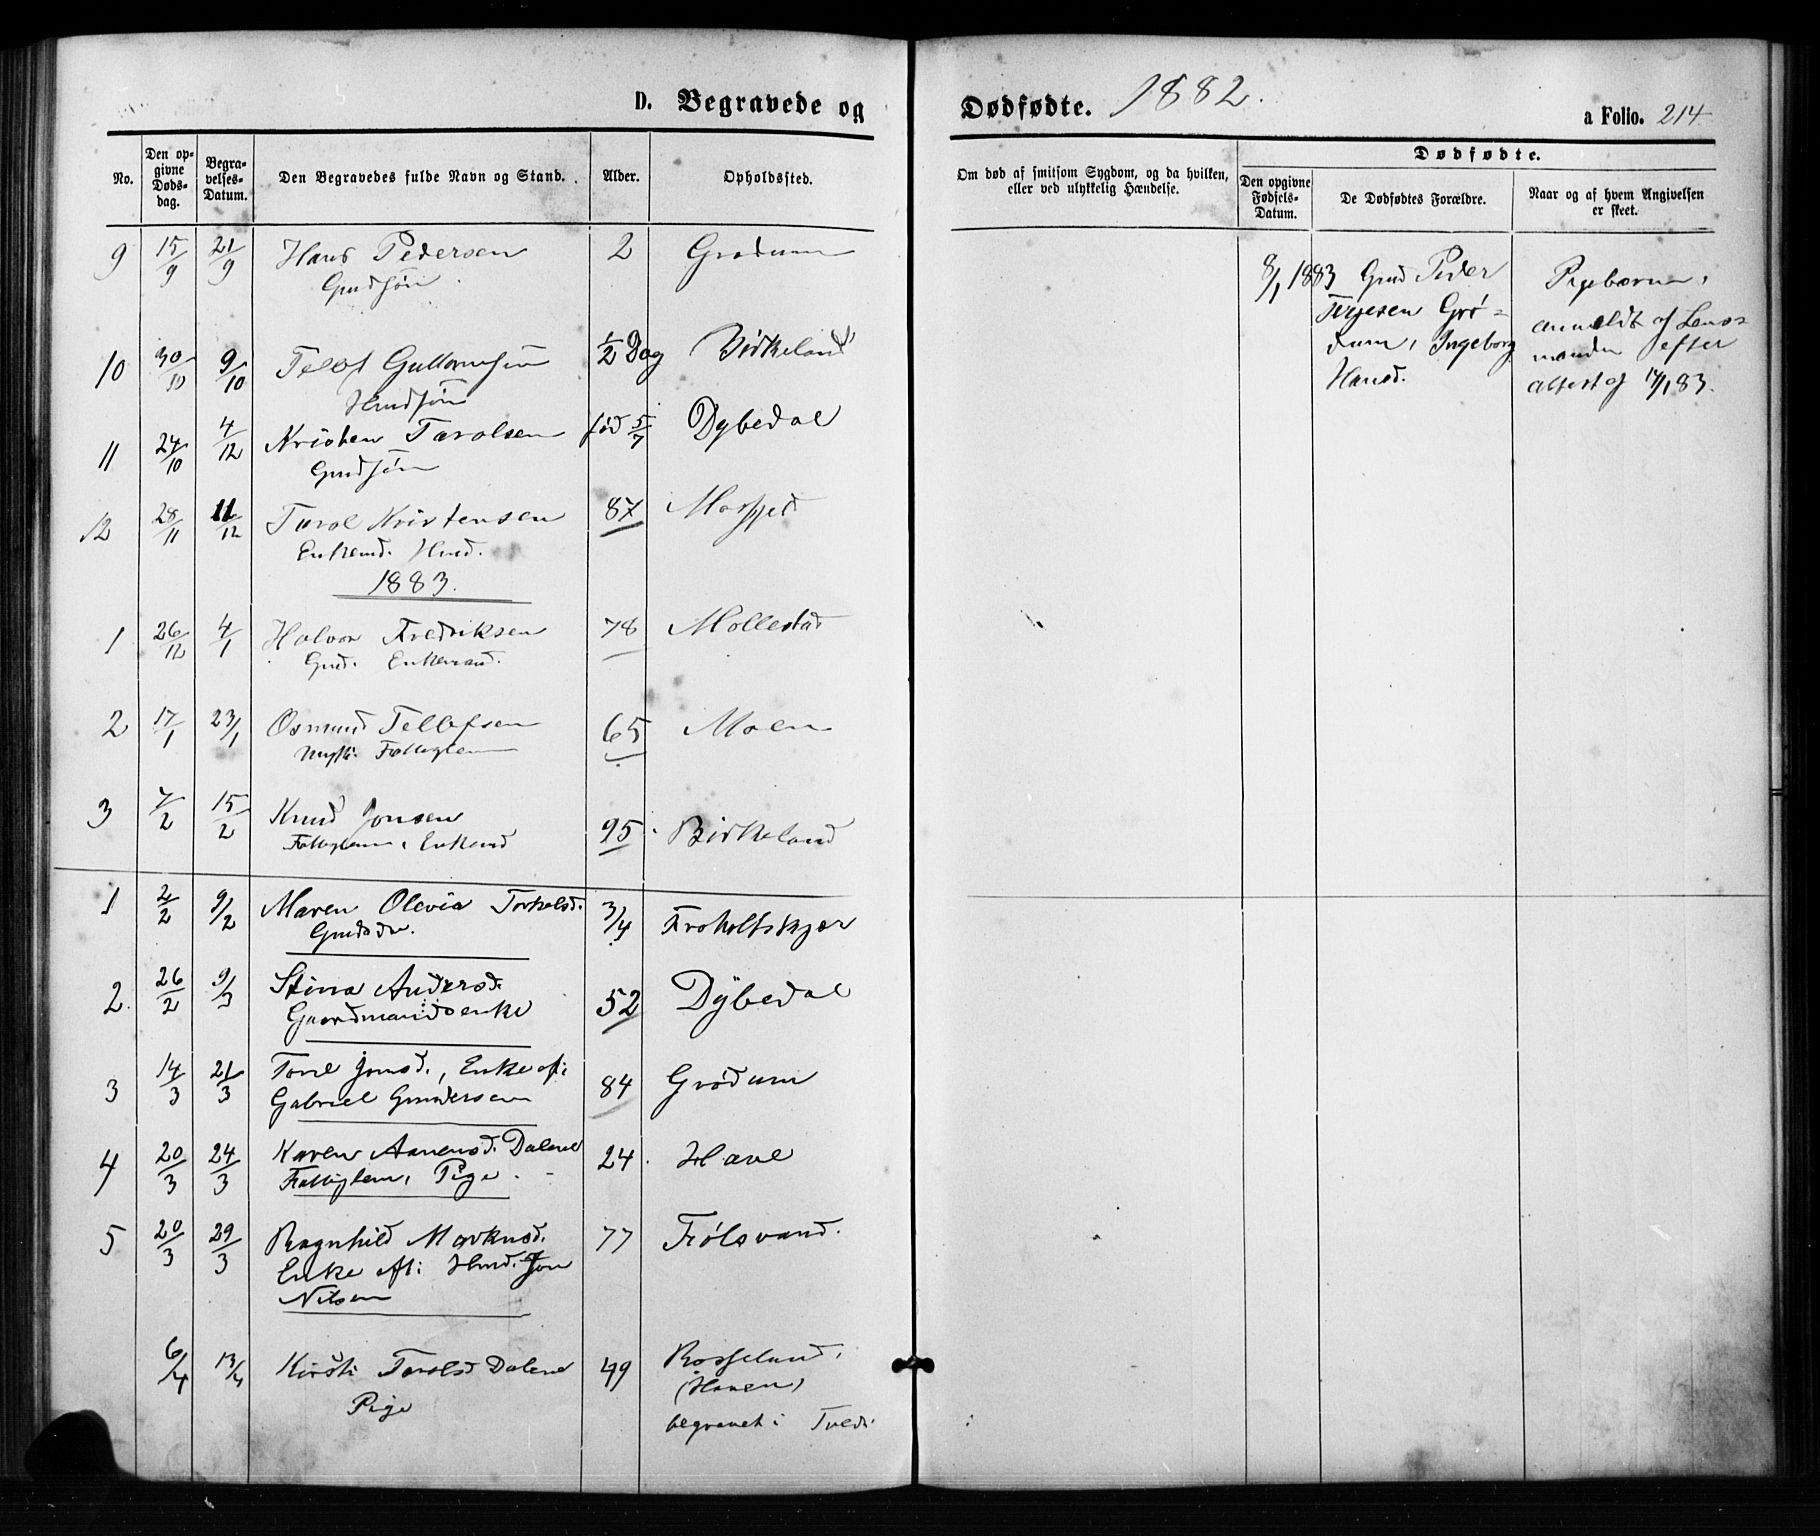 D. Begravede og
Dødfødte. 1882.
a Folio. 214
No.
Den opgivne Dødsdag.
Begravelses-Datum.
Den Begravedes fulde Navn og Stand.
Alder.
Opholdssted.
Om død af smitsom Sygdom, og da hvilken, eller ved ulykkelig Hændelse.
Dødfødte.
Den opgivne Fødsels-Datum.
De Dødfødtes Forældre.
Naar og af hvem Angivelsen er skeet.
9 15/9 21/9 Hans Pedersen 2 Grødum
Gmdsøn
10 30/10 9/10 Tellef Gullormsen 1/2 Dag Birkeland
Hmdsøn
11 24/10 4/12 Kristen Tarolsen fød 5/7 Dybedal
Gmdsøn
12 28/11 11/12 Tarol Kristensen 87 Mosfjed
Enkemd. Hmd.
1883.
1 26/12 4/1 Halvor Fredriksen 78 Mollestad
Gmd. Enkemand.
2 17/1 23/1 Osmund Tellefsen 65 Moen
Fattiglem
3 7/2 15/2 Knud Jonsen 95 Birkeland
Fattiglem, Enkemd
1 2/2 9/2 Maren Olevia Torkelsd. 3/4 Froholtskjær
Gmdsdr.
2. 26/2 9/3 Stina Andersd. 52 Dÿbedal
Gaardmandsenke
3 14/3 21/3 Toril Jonsd., Enke eft: 84 Grødum
Gabriel Gundersen
4 20/3 24/3 Karen Aanensd. Dalene 24. Have
Fattiglem, Pige.
5 20/3 29/3 Ragnhild Markusd. 77 Følsvand.
Enke eft: Hmd. Jon
Nilsen
6/4 13/4 Kirsti Tarolsd Dalene 49 Rosseland,
Pige (Haven)
begravet i Tved.
8/1 1883 Gmd Peder
Terjesen Grø-
dum, Ingeborg
Hansd.
Pigebarn,
anmeldt af Lens-
manden efter
attest af 14/1 83.